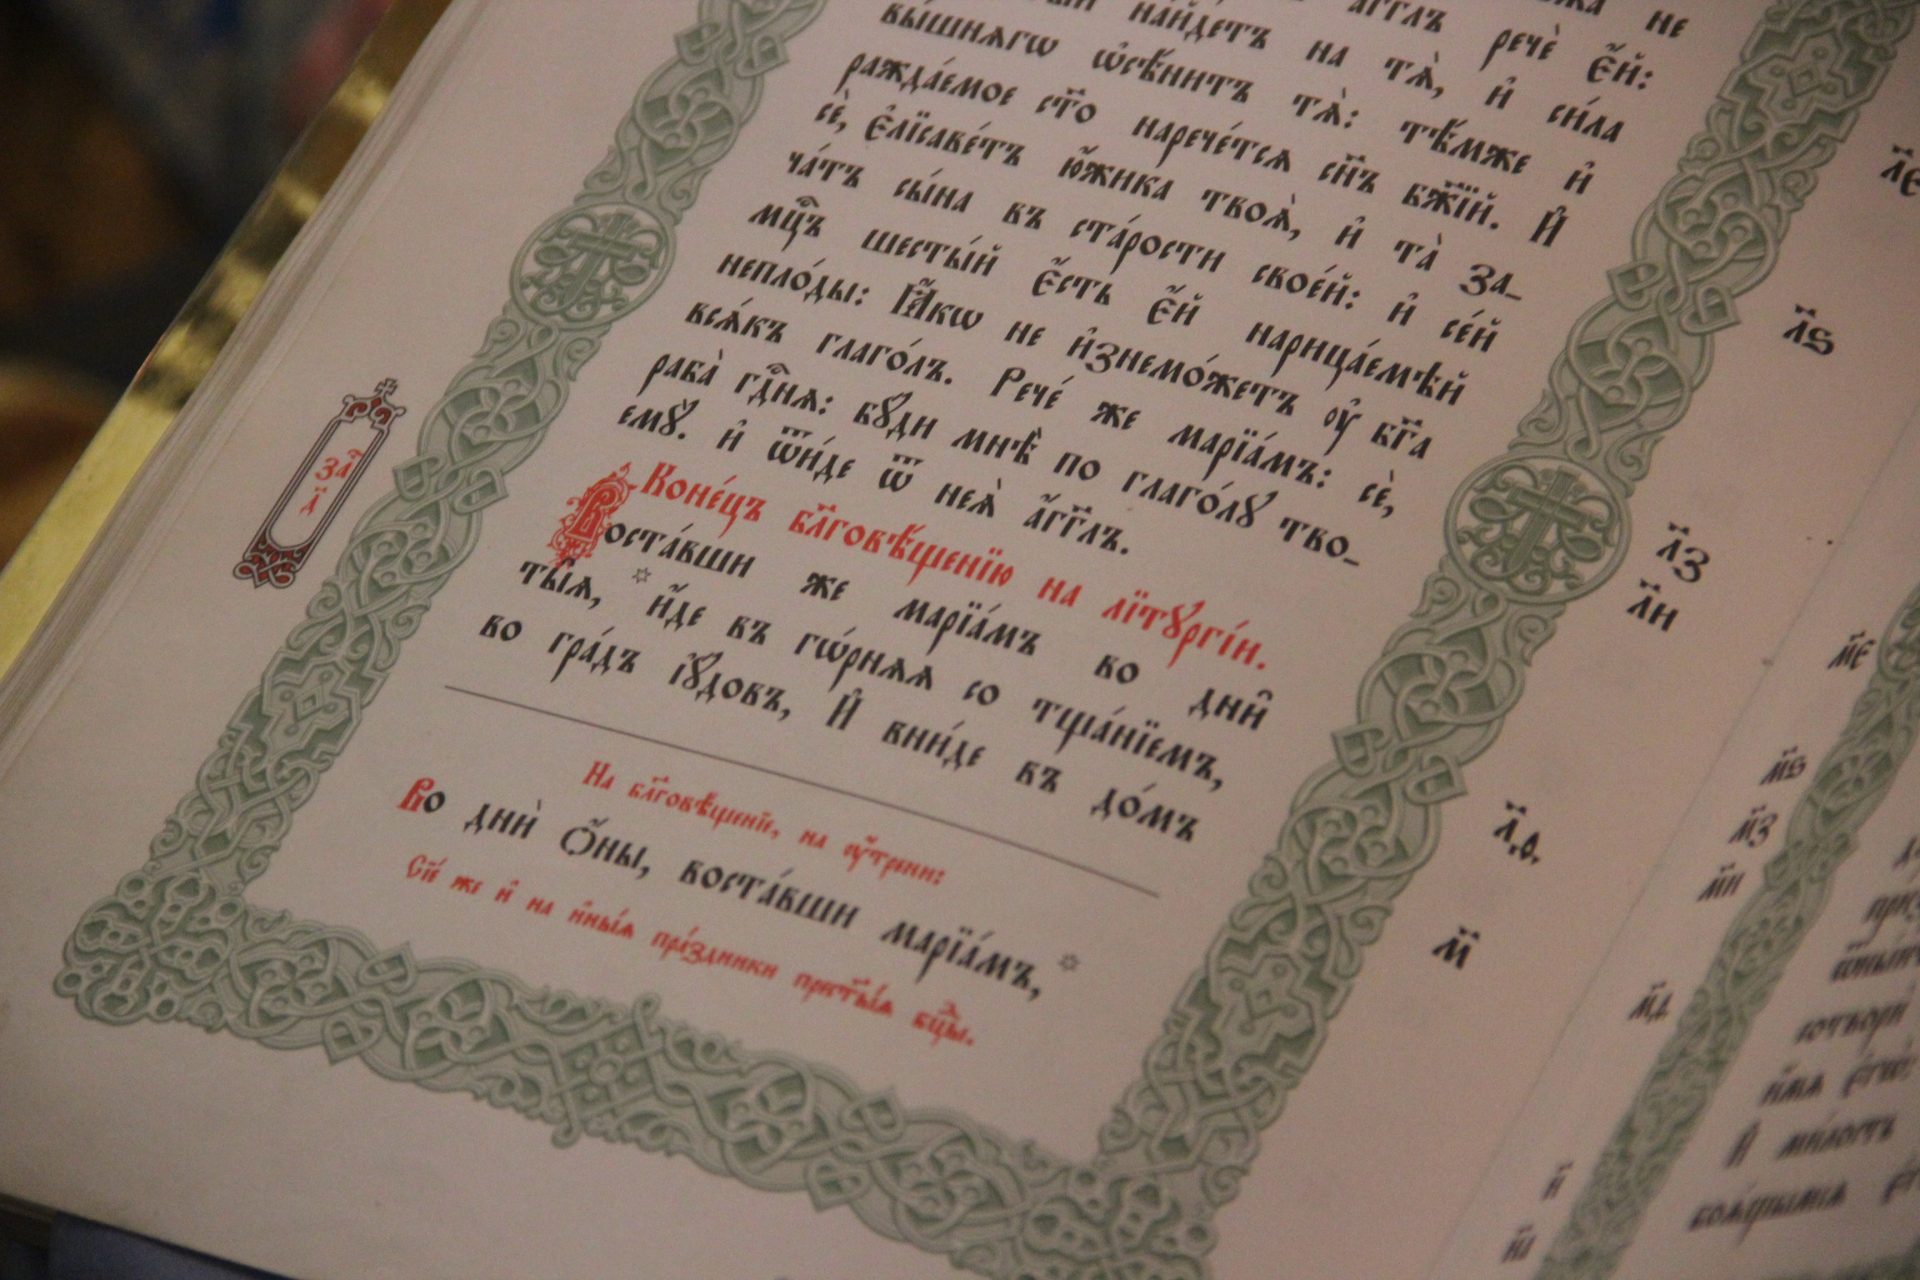 не
найдетъ на тѧ̀, и҆ си́ла
а҆́гг҃лъ речѐ є҆́й:
вы́шнѧгѡ ѡ҆сѣни́тъ тѧ̀: тѣ́мже и҆
ражда́емое ст҃о нарече́тсѧ сн҃ъ бж҃їй. И҆
сѐ, є҆лїсаве́тъ ю҆́жика твоѧ̀, и҆ та̀ за-
ча́тъ сы́на въ ста́рости свое́й: и҆ се́й
мц҇ъ шесты́й є҆́сть є҆́й нарица́емѣй
непло́ды: Ꙗ҆́кѡ не и҆знемо́жетъ ᲂу҆ бг҃а
всѧ́къ глаго́лъ. Рече́ же марїа́мъ: сѐ,
раба̀ гд҇нѧ: бꙋ́ди мнѣ̀ по глаго́лꙋ тво-
емꙋ̀. и҆ ѿи́де ѿ неѧ̀ а҆́гг҃лъ.
Коне́цъ бл҃говѣ́щенїю на лїтꙋргі́и.
Воста́вши же марїа́мъ во дни̑
ты̑ѧ, и҆́де въ гѡ́рнѧѧ со тща́нїемъ,
во гра́дъ і҆ꙋ́довъ, И҆ вни́де въ до́мъ
На бл҃говѣ́щенїе, на ᲂу҆́трени:
Во дни̑ ѻ҆́ны, воста́вши марїа́мъ,
Сїѐ же и҆ на и҆ны̑ѧ пра́здники прⷭ҇ты́ѧ бцⷣы.
заⷱ҇
д҃
л҃е
л҃ѕ
л҃з
л҃и
л҃ѳ
м҃
м҃е
м҃ѕ
м҃з
м҃и
м҃д
И҆ ми́лость